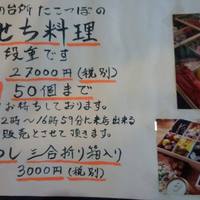 の台所 たこつぼの
せち料理
段重です
27000円(税別)
50個まで
お待ちしております。
2時〜16時59分に来店出来る
販売とさせて頂きます。
し 三合折り箱入り
3000円(税別)